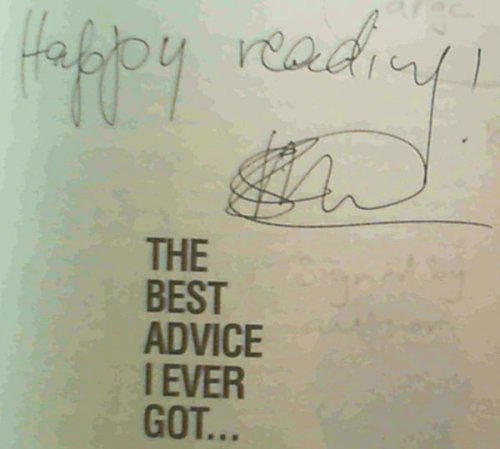 Happy reading!
THE
BEST
ADVICE
I EVER
GOT...
Signed by
author